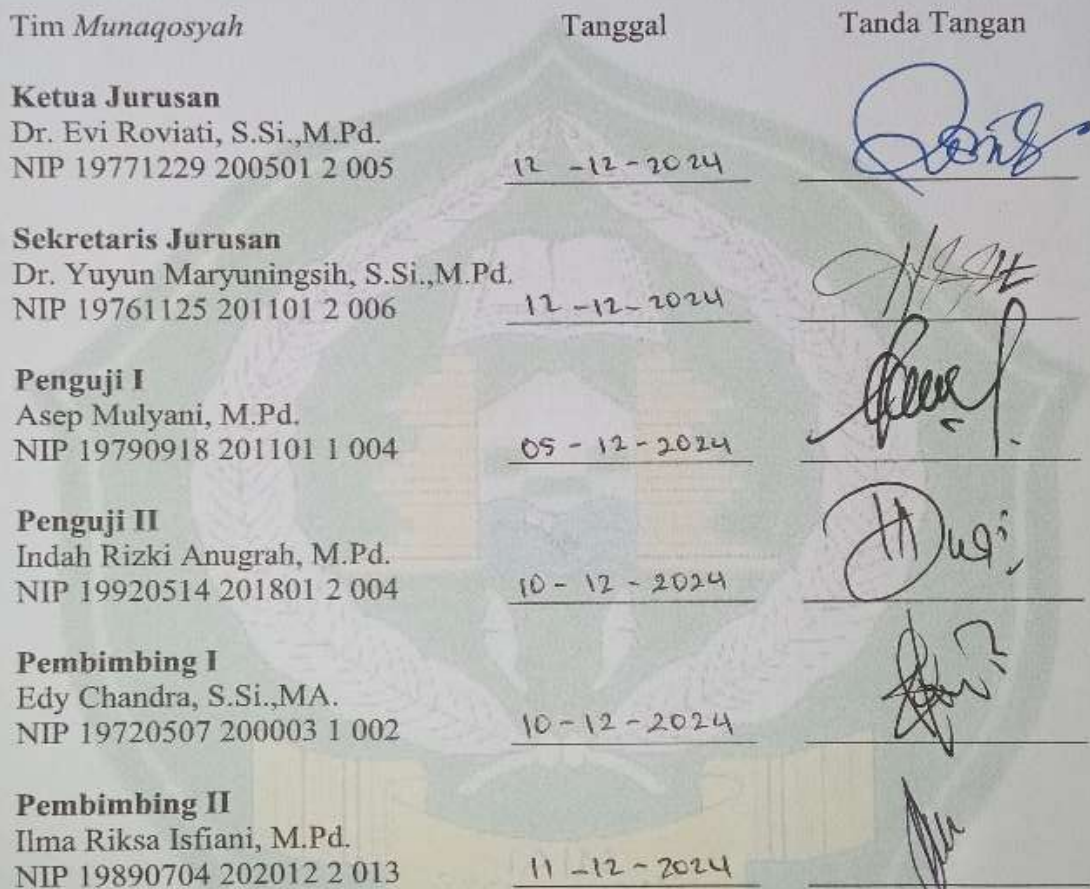 Tim Munaqosyah Tanggal Tanda Tangan
Ketua Jurusan
Dr. Evi Roviati, S.Si.,M.Pd.
NIP 19771229 200501 2 005 12 -12-2024
Sekretaris Jurusan
Dr. Yuyun Maryuningsih, S.Si.,M.Pd.
NIP 19761125 201101 2 006 12-12-2024
Penguji I
Asep Mulyani, M.Pd.
NIP 19790918 201101 1 004 05 - 12 - 2024
Penguji II
Indah Rizki Anugrah, M.Pd.
NIP 19920514 201801 2 004 10 - 12 - 2024
Pembimbing I
Edy Chandra, S.Si.,MA.
NIP 19720507 200003 1 002 10 - 12 - 2024
Pembimbing II
Ilma Riksa Isfiani, M.Pd.
NIP 19890704 202012 2 013 11 -12 - 2024